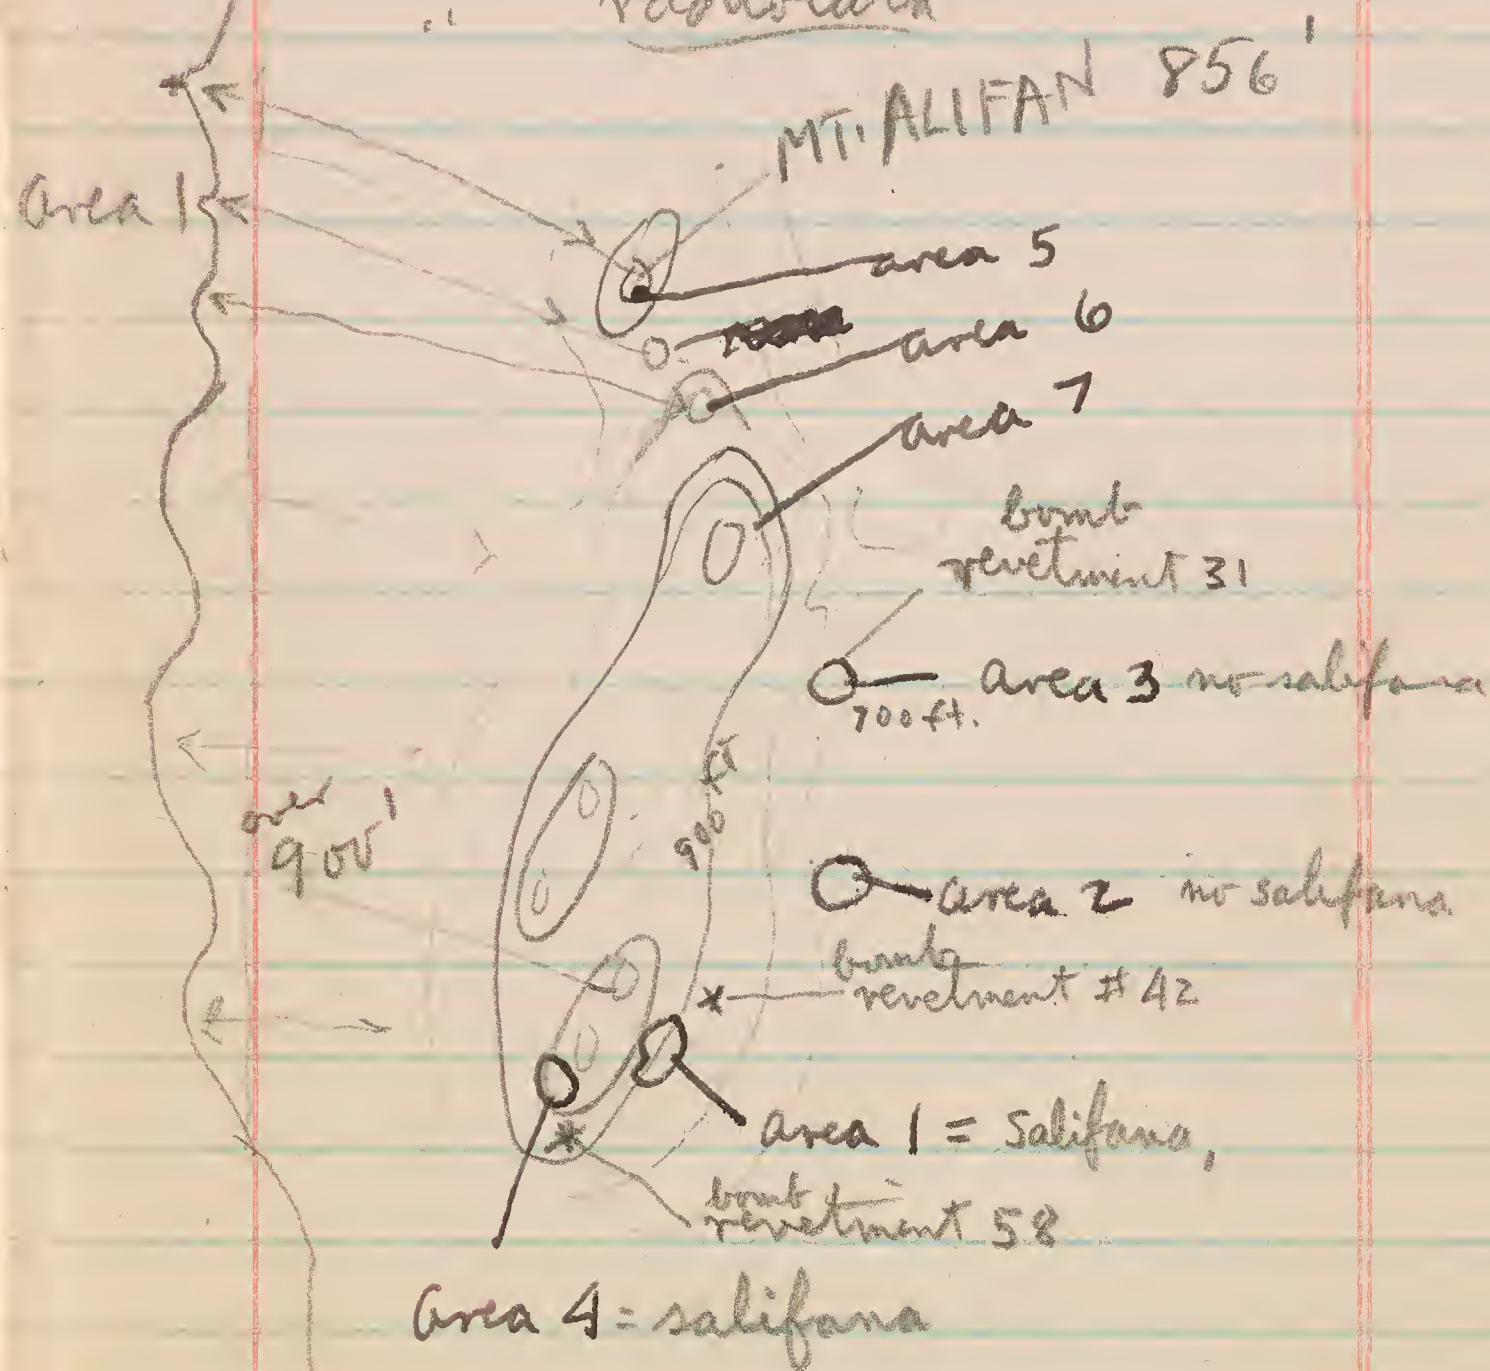 MT. ALIFAN 856'
area 1
area 5
area 6
area 7
bomb
revetment 31
area 3 no salifana
700 ft.
900 ft
over
900'
area 2 no salifana
bomb
revetment # 42
area 1 = Salifana,
bomb
revetment 58
area 4 = salifana